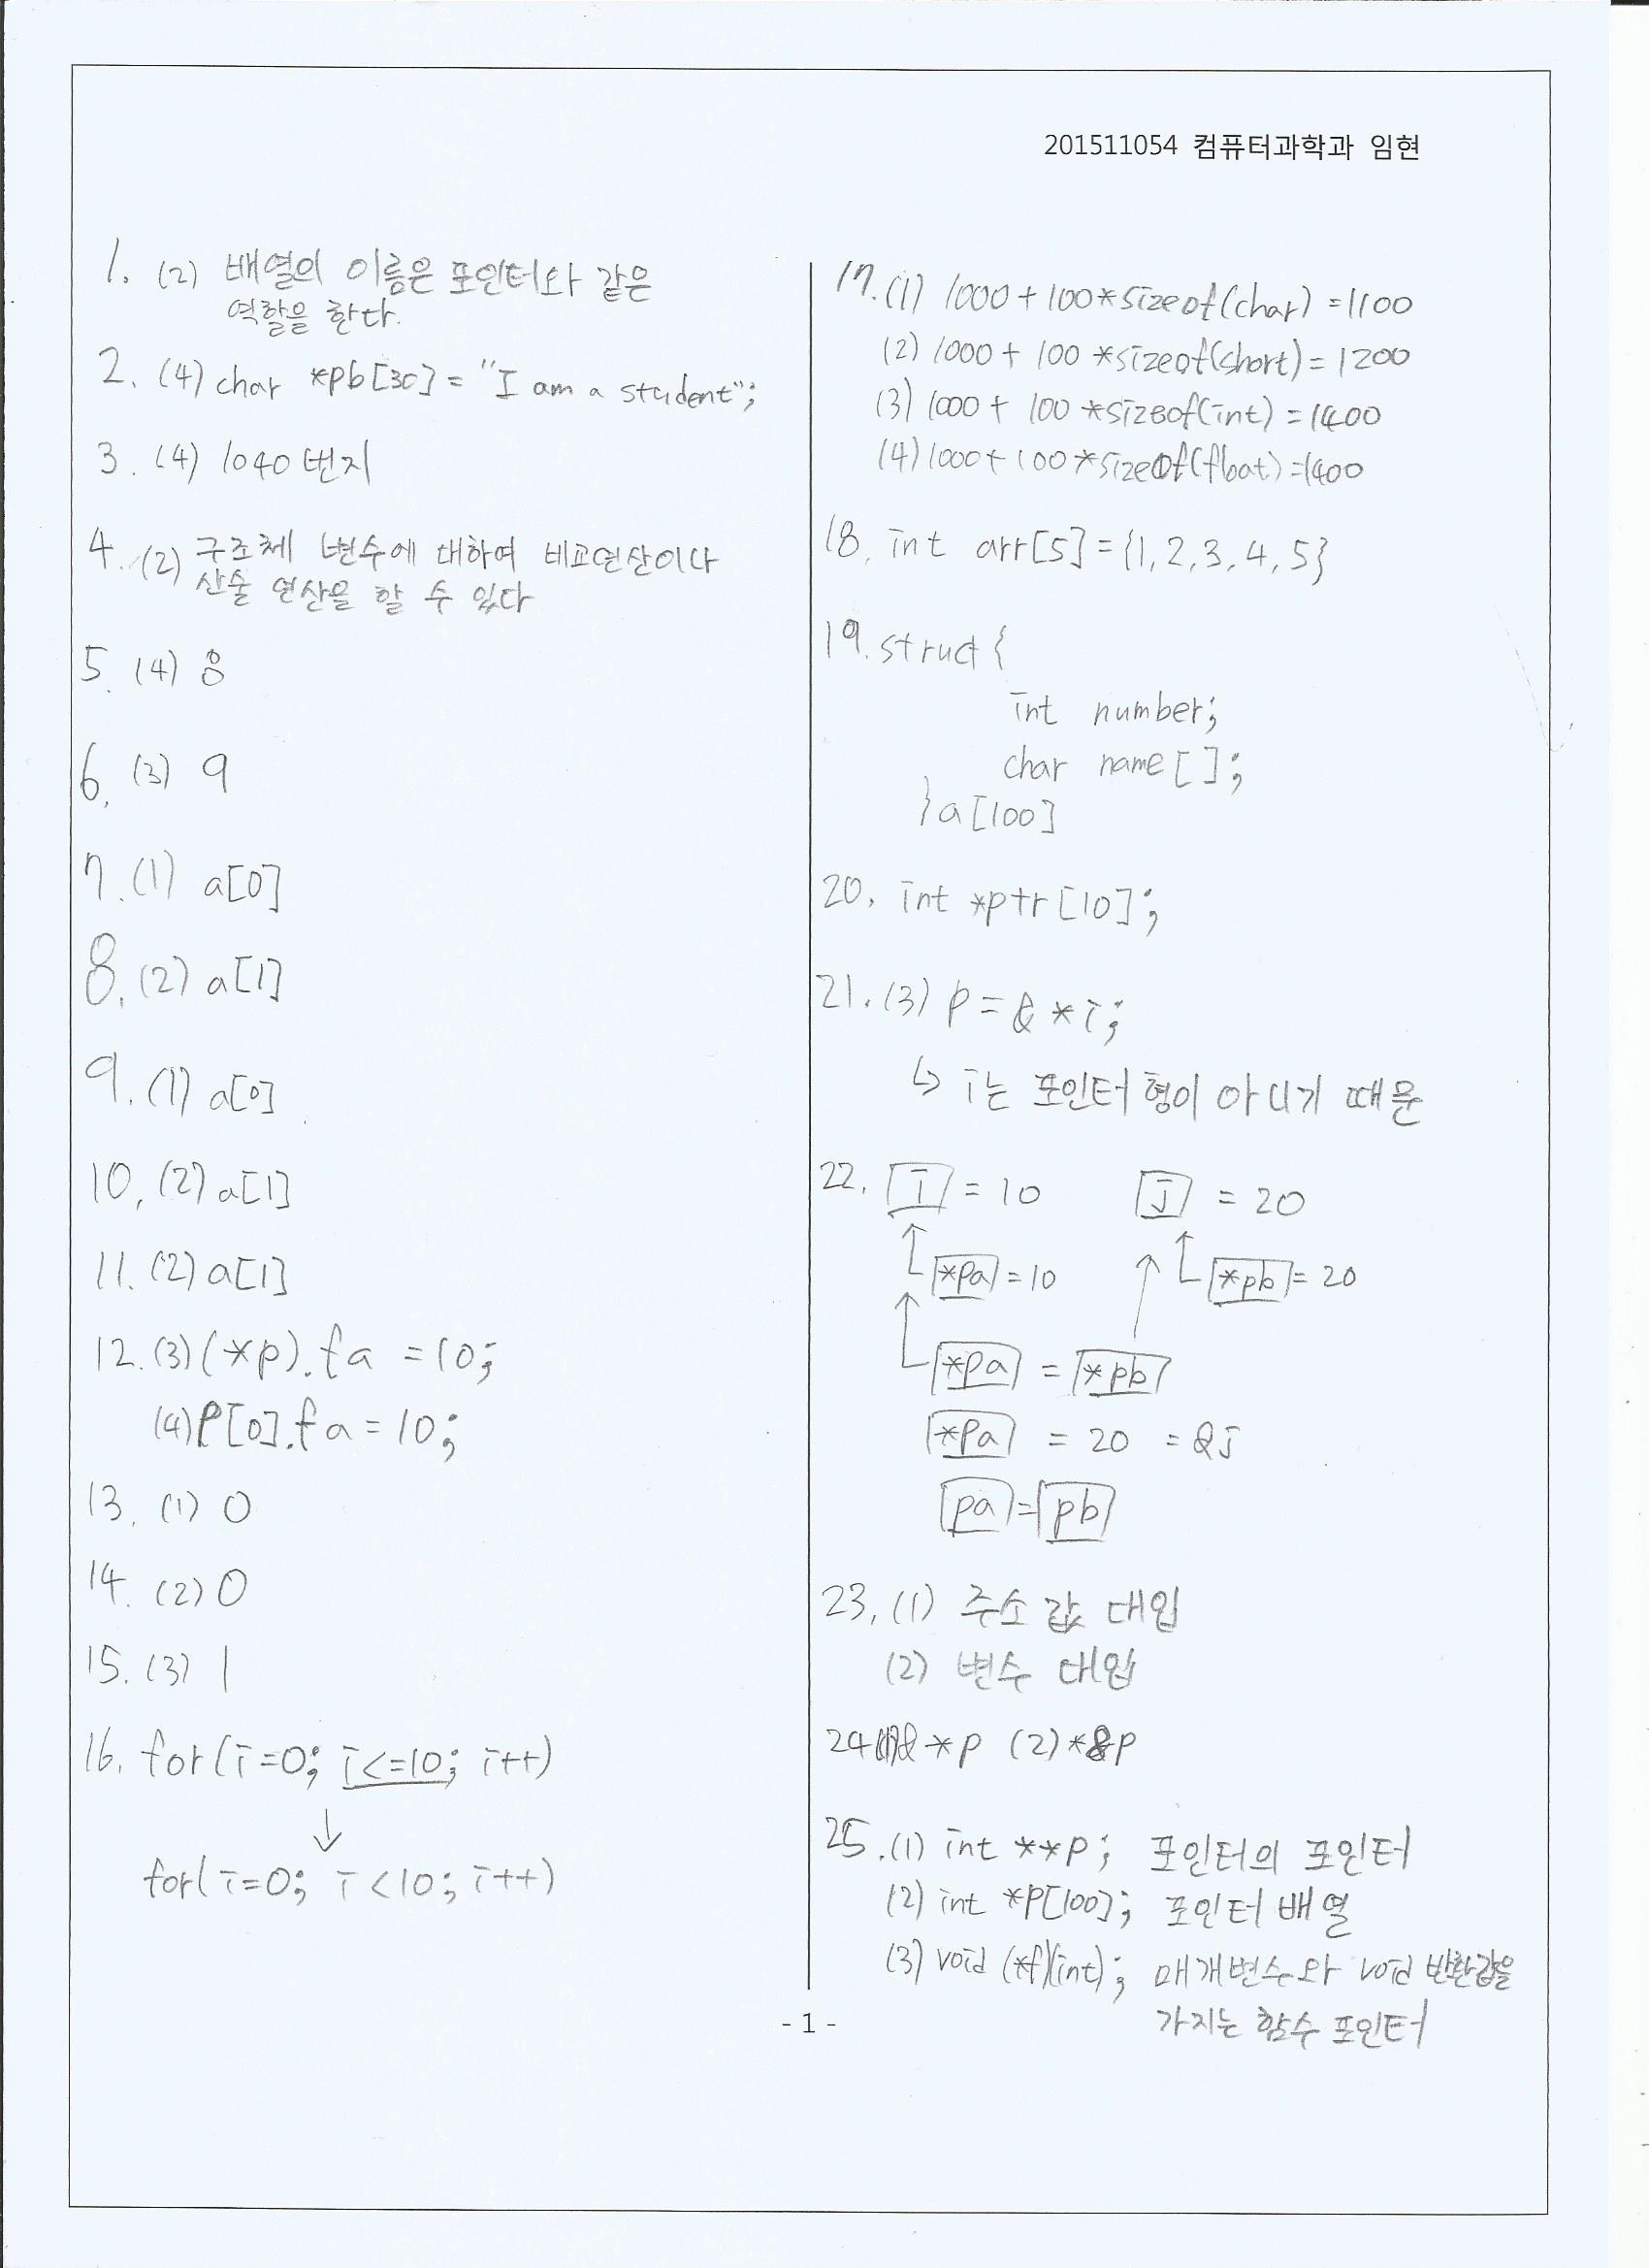 201511054 컴퓨터과학과 임현
1. (2) 배열의 이름은 포인터와 같은
역할을 한다.
2. (4) char *pb[30] = "I am a student";
3. (4) 1040번지
4. (2) 구조체 변수에 대하여 비교연산이나
산술 연산을 할 수 있다
5. (4) 8
6. (3) 9
7. (1) a[0]
8. (2) a[1]
9. (1) a[0]
10. (2) a[1]
11. (2) a[1]
12. (3) (*p).fa = 10;
(4) P[0].fa = 10;
13. (1) 0
14. (2) 0
15. (3) 1
16. for(i=0; i<=10; i++)
↓
for(i=0; i<10; i++)
17. (1) 1000 + 100*sizeof(char) = 1100
(2) 1000 + 100 *sizeof(short) = 1200
(3) 1000 + 100 *sizeof(int) = 1400
(4) 1000 + 100 *sizeof(float) = 1400
18. int arr[5] = {1, 2, 3, 4, 5}
19. struct {
int number;
char name[];
} a[100]
20. int *ptr[10];
21. (3) p = & *i;
↳ i는 포인터형이 아니기 때문
22. i = 10 j = 20
*pa = 10 *pb = 20
*pa = *pb
*pa = 20 = &j
pa = pb
23. (1) 주소 값 대입
(2) 변수 대입
24 (1)& *p (2) *&p
25. (1) int **p; 포인터의 포인터
(2) int *P[100]; 포인터 배열
(3) void (*f)(int); 매개변수와 void 반환값을
가지는 함수 포인터
- 1 -